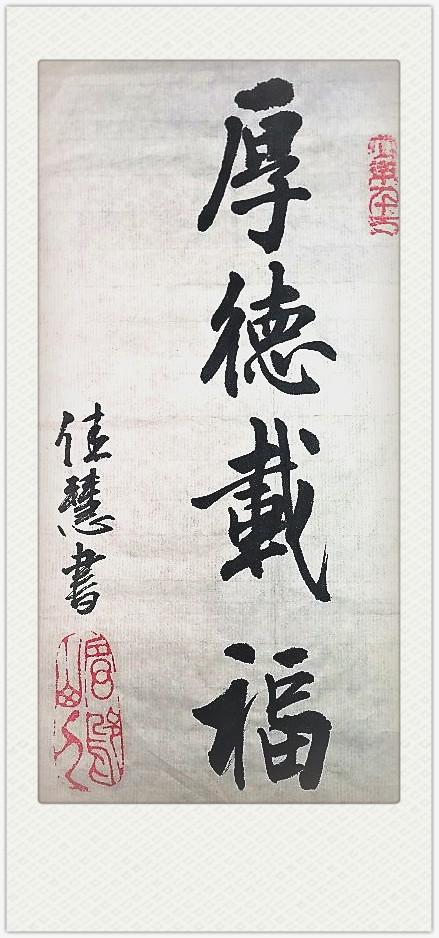 厚德載福
佳慧書